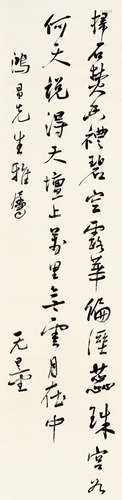 掃石焚香禮碧空露華偏溼蕊珠宮如
何天說得天壇上萬里無雲月在中
先生雅屬
无量